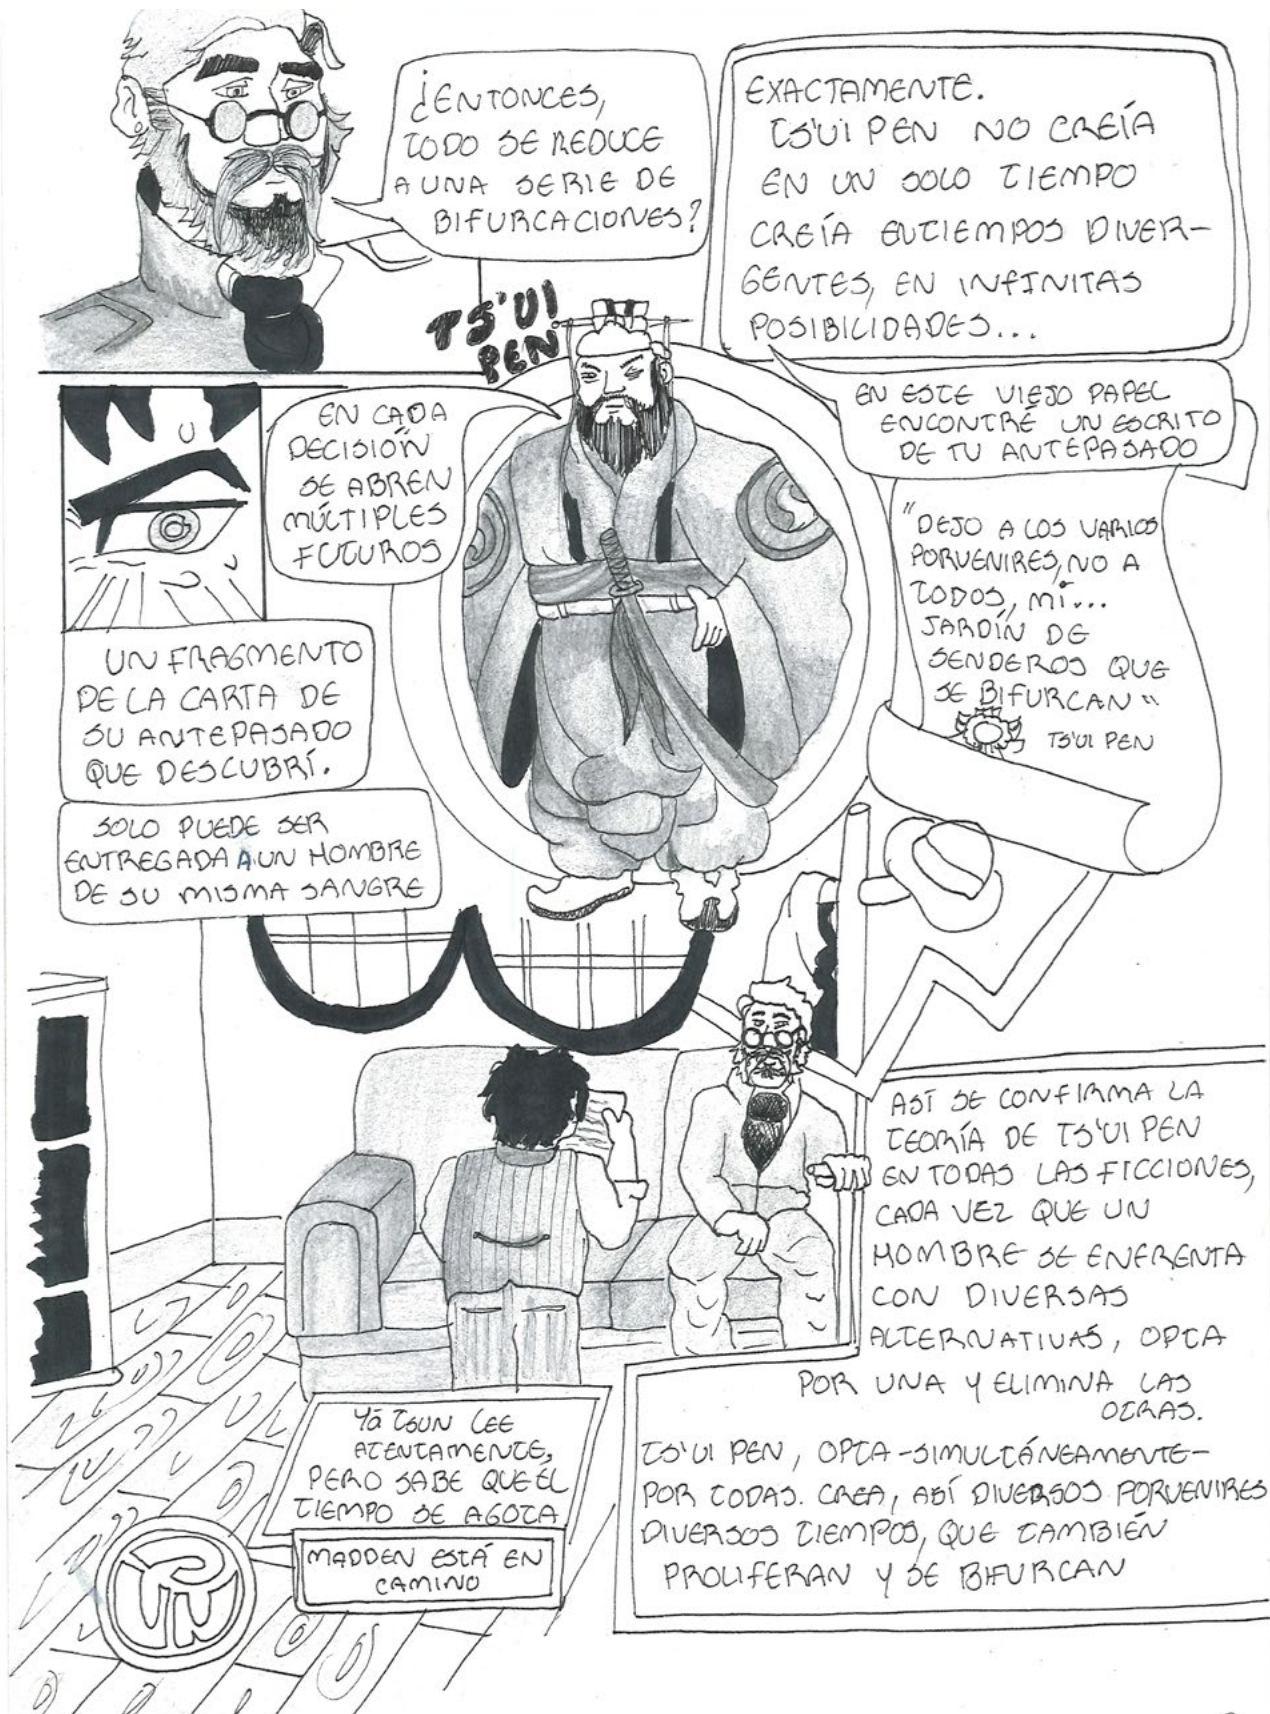 ¿ENTONCES,
TODO SE REDUCE
A UNA SERIE DE
BIFURCACIONES?
EXACTAMENTE.
TS'UI PEN NO CREÍA
EN UN SOLO TIEMPO
CREÍA EN TIEMPOS DIVER-
GENTES, EN INFINITAS
POSIBILIDADES...
TS'UI
PEN
EN CADA
DECISIÓN
SE ABREN
MÚLTIPLES
FUTUROS
EN ESTE VIEJO PAPEL
ENCONTRÉ UN ESCRITO
DE TU ANTEPASADO
"DEJO A LOS VARIOS
PORVENIRES, NO A
TODOS, MÍ...
JARDÍN DE
SENDEROS QUE
SE BIFURCAN"
TS'UI PEN
UN FRAGMENTO
DE LA CARTA DE
SU ANTEPASADO
QUE DESCUBRÍ.
SOLO PUEDE SER
ENTREGADA A UN HOMBRE
DE SU MISMA SANGRE
ASÍ SE CONFIRMA LA
TEORÍA DE TS'UI PEN
EN TODAS LAS FICCIONES,
CADA VEZ QUE UN
HOMBRE SE ENFRENTA
CON DIVERSAS
ALTERNATIVAS, OPTA
POR UNA Y ELIMINA LAS
OTRAS.
TS'UI PEN, OPTA -SIMULTÁNEAMENTE-
POR TODAS. CREA, ASÍ DIVERSOS PORVENIRES
DIVERSOS TIEMPOS, QUE TAMBIÉN
PROLIFERAN Y SE BIFURCAN
Yá TSUN LEE
ATENTAMENTE,
PERO SABE QUE EL
TIEMPO SE AGOTA
MADDEN ESTÁ EN
CAMINO